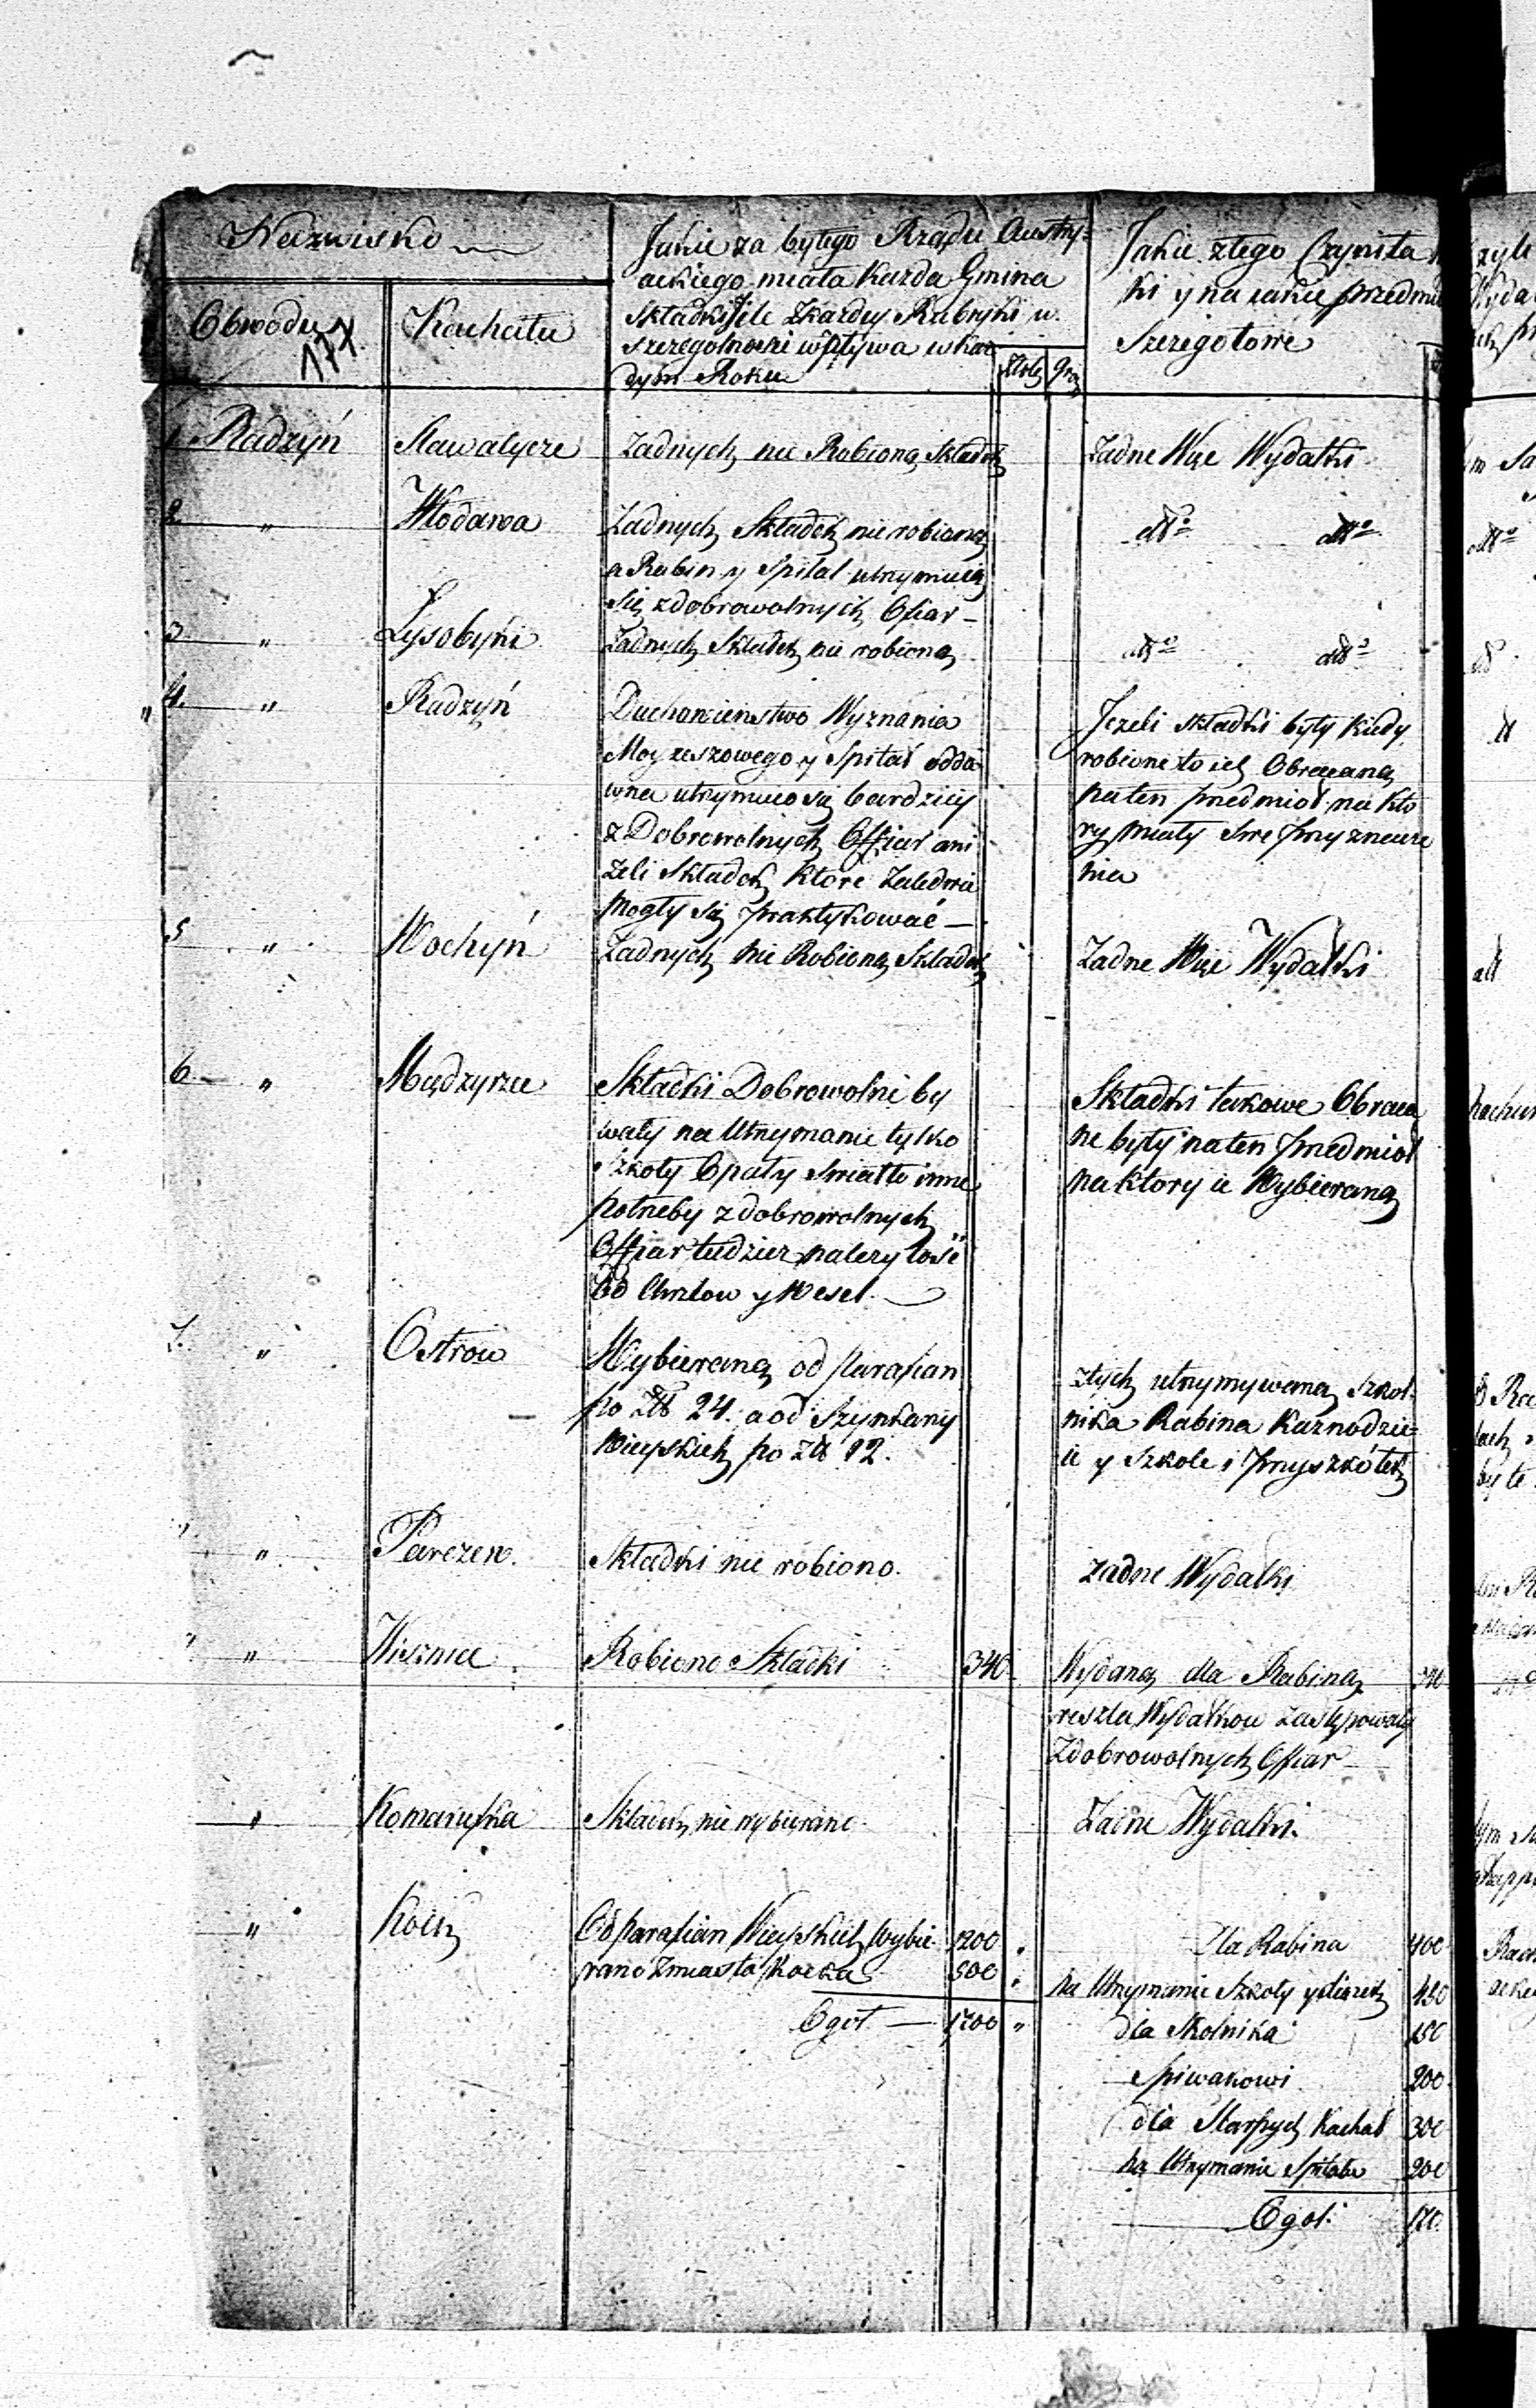 Nazwisko
Obwodu
Kachału
177
Jakie za byłego Rządu Austry-
ackiego miała Kazda Gmina
Składki Jle zkazdey Rubryki w
szczegolnosci wpływa w każ
dym Roku
Złote
Gro
Jakie ztego Czyniła
ki y na iakie przedmio
Szczegołowe
1 Radzyń
Sławatycze
Zadnych nie Robiono Składek
Żadne Więc Wydatki
2 "
Włodawa
Zadnych Składek nie robiono
a Rabin y Spital utrzymuią
się z dobrowolnych Ofiar -
dtto dtto
3 "
Łysobyki
Zadnych Składek nie robiono
dtto dtto
4. "
Radzyń
Duchowienstwo Wyznania
Moyzeszowego y Spital odda
wna utrzymuio się bardziey
z Dobrowolnych Offiar ani
żeli Składek które zaledwie
mogły się praktykować -
Jezeli składki były kiedy
robione to ich Obracano
na ten przedmiot na kto
ry miały Swe przyznacze
nia
5 "
Wochyń
Zadnych nie Robiono Składek
Żadne Więc Wydatki
6 "
Międzyrzec
Składki Dobrowolni by
wały na Utrzymanie tylko
Szkoły Opały Swiatło inne
potrzeby z dobrowolnych
Offiar tudzierz nalezytość
Od Chrztow y Wesel
Składki takowe Obraca
ne były na ten przedmiot
na ktory ie Wybierano
7. "
Ostrow
Wybierano od parafian
po Złt 24. a od Szynkarzy
Wieyskich po Złt 12.
z tych utrzymywano Szkol-
nika Rabina Kaznodzie-
ie y Szkole i przyszkołek
"
Parczew.
Składki nie robiono.
żadne Wydatki
"
Wisznice
Robiono Składki
340
Wydano dla Rabina
reszta Wydatkow zastępowały
Zdobrowolnych Offiar
"
Komarufka
Składek nie wybierano
Żadne Wydatki.
"
Kock
Od parafian Wieyskich Wybie- 1200
rano z miasta Kocka 500
Ogoł 1700 "
Dla Rabina 400
Na Utrzymanie Szkoły 450
dla Skolnika 150
Spiwakowi 200
dla Starszych Kachał 300
na Utrzymanie Spitalu 200
Ogoł. 170